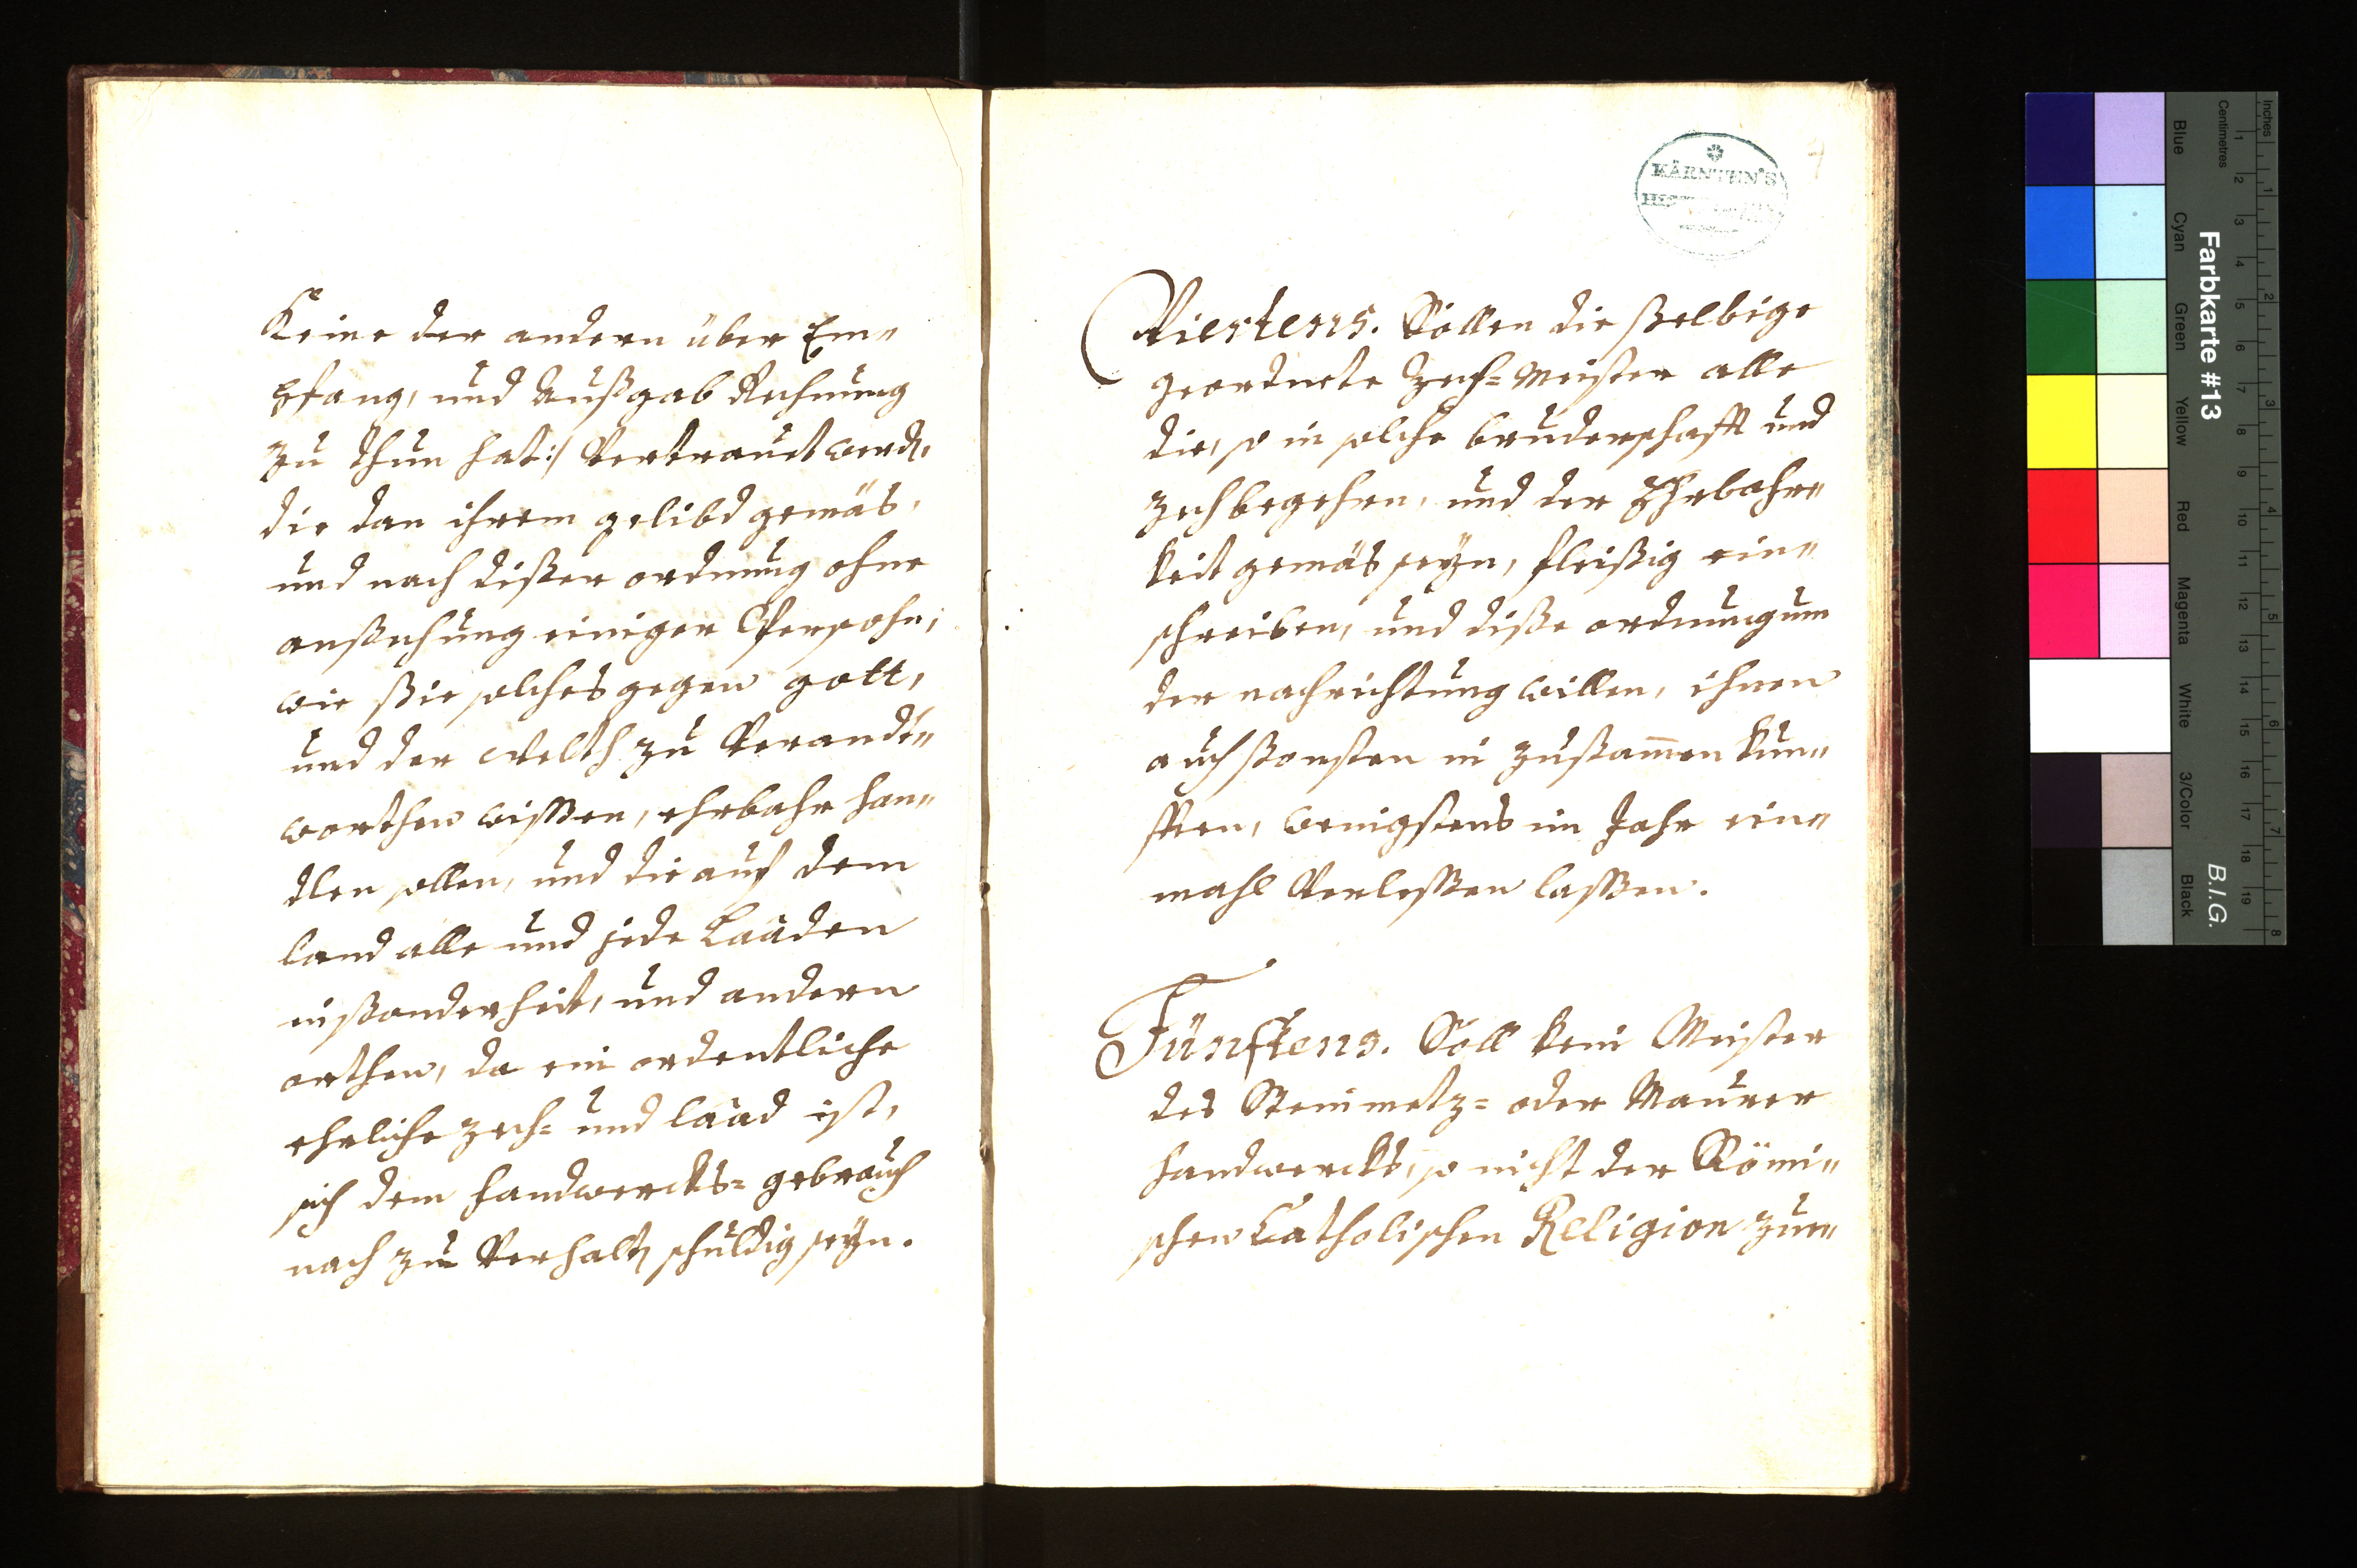 Keine der andern über Em„
pfang, und Außgab Rechnung
zu thun hat:/ Vertrauet werdẽ,
die dan ihrem gelibd gemäs,
und nach dißer ordnung ohne
anßechung einiger Persohn,
wie ßie solches gegen gott,
und der welth zu Verandt„
worthen wißen, ehrbahr han„
dlen sollen, und die auf dem
land alle und jede Laaden
inßonderheit, und andern
orthen, da ein ordentliche
ehrliche zech= und laad ist,
sich dem handwercks= gebrauch
nach zu Verhaltẽ schuldig seyn.
KÄRNTEN'S
4
Viertens. Söllen die ßelbige
geordnete Zech= Meister alle
die, so in solche bruderschafft und
zech begehren, und der Ehrbahr„
keit gemäs seyn, fleißig ein„
schreiben, und diße ordnung um
der nachrichtung willen, ihnen
auch ßonsten in zußam̄en kun„
fften, wenigstens im Jahr ein„
mahl Verleßen laßen.
Fünftens. Soll kein Meister
des Steinmetz= oder Maurer
handwercks, so nicht der Römi„
schen Catholischen Religion zue„
Farbkarte #13
B.I.G.
Inches
Centimetres
1 2 3 4 5 6 7 8
1 2 3 4 5 6 7 8 9 10 11 12 13 14 15 16 17 18 19
Blue
Cyan
Green
Yellow
Red
Magenta
White
3/Color
Black